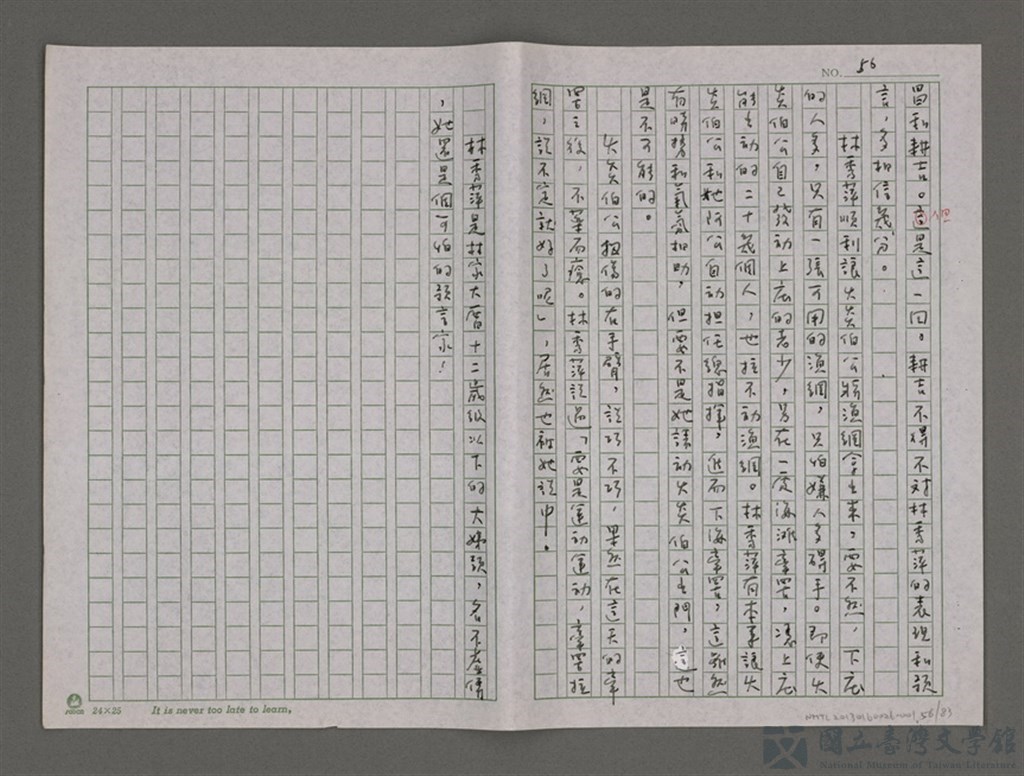 NO. 56
昌和耕吉。這但是這一回。耕吉不得不對林秀萍的表現和預
言,多相信幾分。
林秀萍順利讓火炎伯公將漁網拿出來,要不然,下庄
的人多,只有一張可用的漁網,只怕嫌人多碍手。即使火
炎伯公自己發動上庄的老少,另在一處海灘牽罟,憑上庄
能出動的二十幾個人,也拉不動漁網。林秀萍有本事讓火
炎伯公和她阿公自動担任總指揮,進而下海牽罟,這雖然
有嘮攪和氣氛相助,但要不是她請動火炎伯公出門,這也
是不可能的。
火炎伯公扭傷的右手臂,說巧不巧,果然在這天的牽
罟之後,不藥而癒。林秀萍說過「要是運動運動,牽罟拉
網,說不定就好了呢」,居然也被她說中。
林秀萍是林家大厝十二歲級以下的大姊頭,名不虛傳
,她還是個可怕的預言家!
24×25
It is never too late to learn.
NMTL20130160026-001_56/83
國立臺灣文學館
National Museum of Taiwan Literature